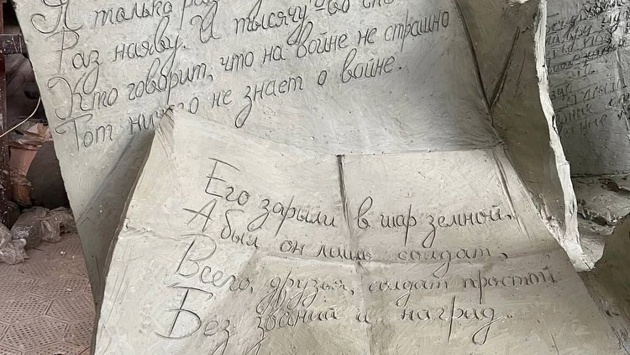 Я только раз
Раз наяву. И тысячу - во сне
Кто говорит, что на войне не страшно
Тот ничего не знает о войне.
Его зарыли в шар земной,
А был он лишь солдат,
Всего, друзья, солдат простой
Без званий и наград.